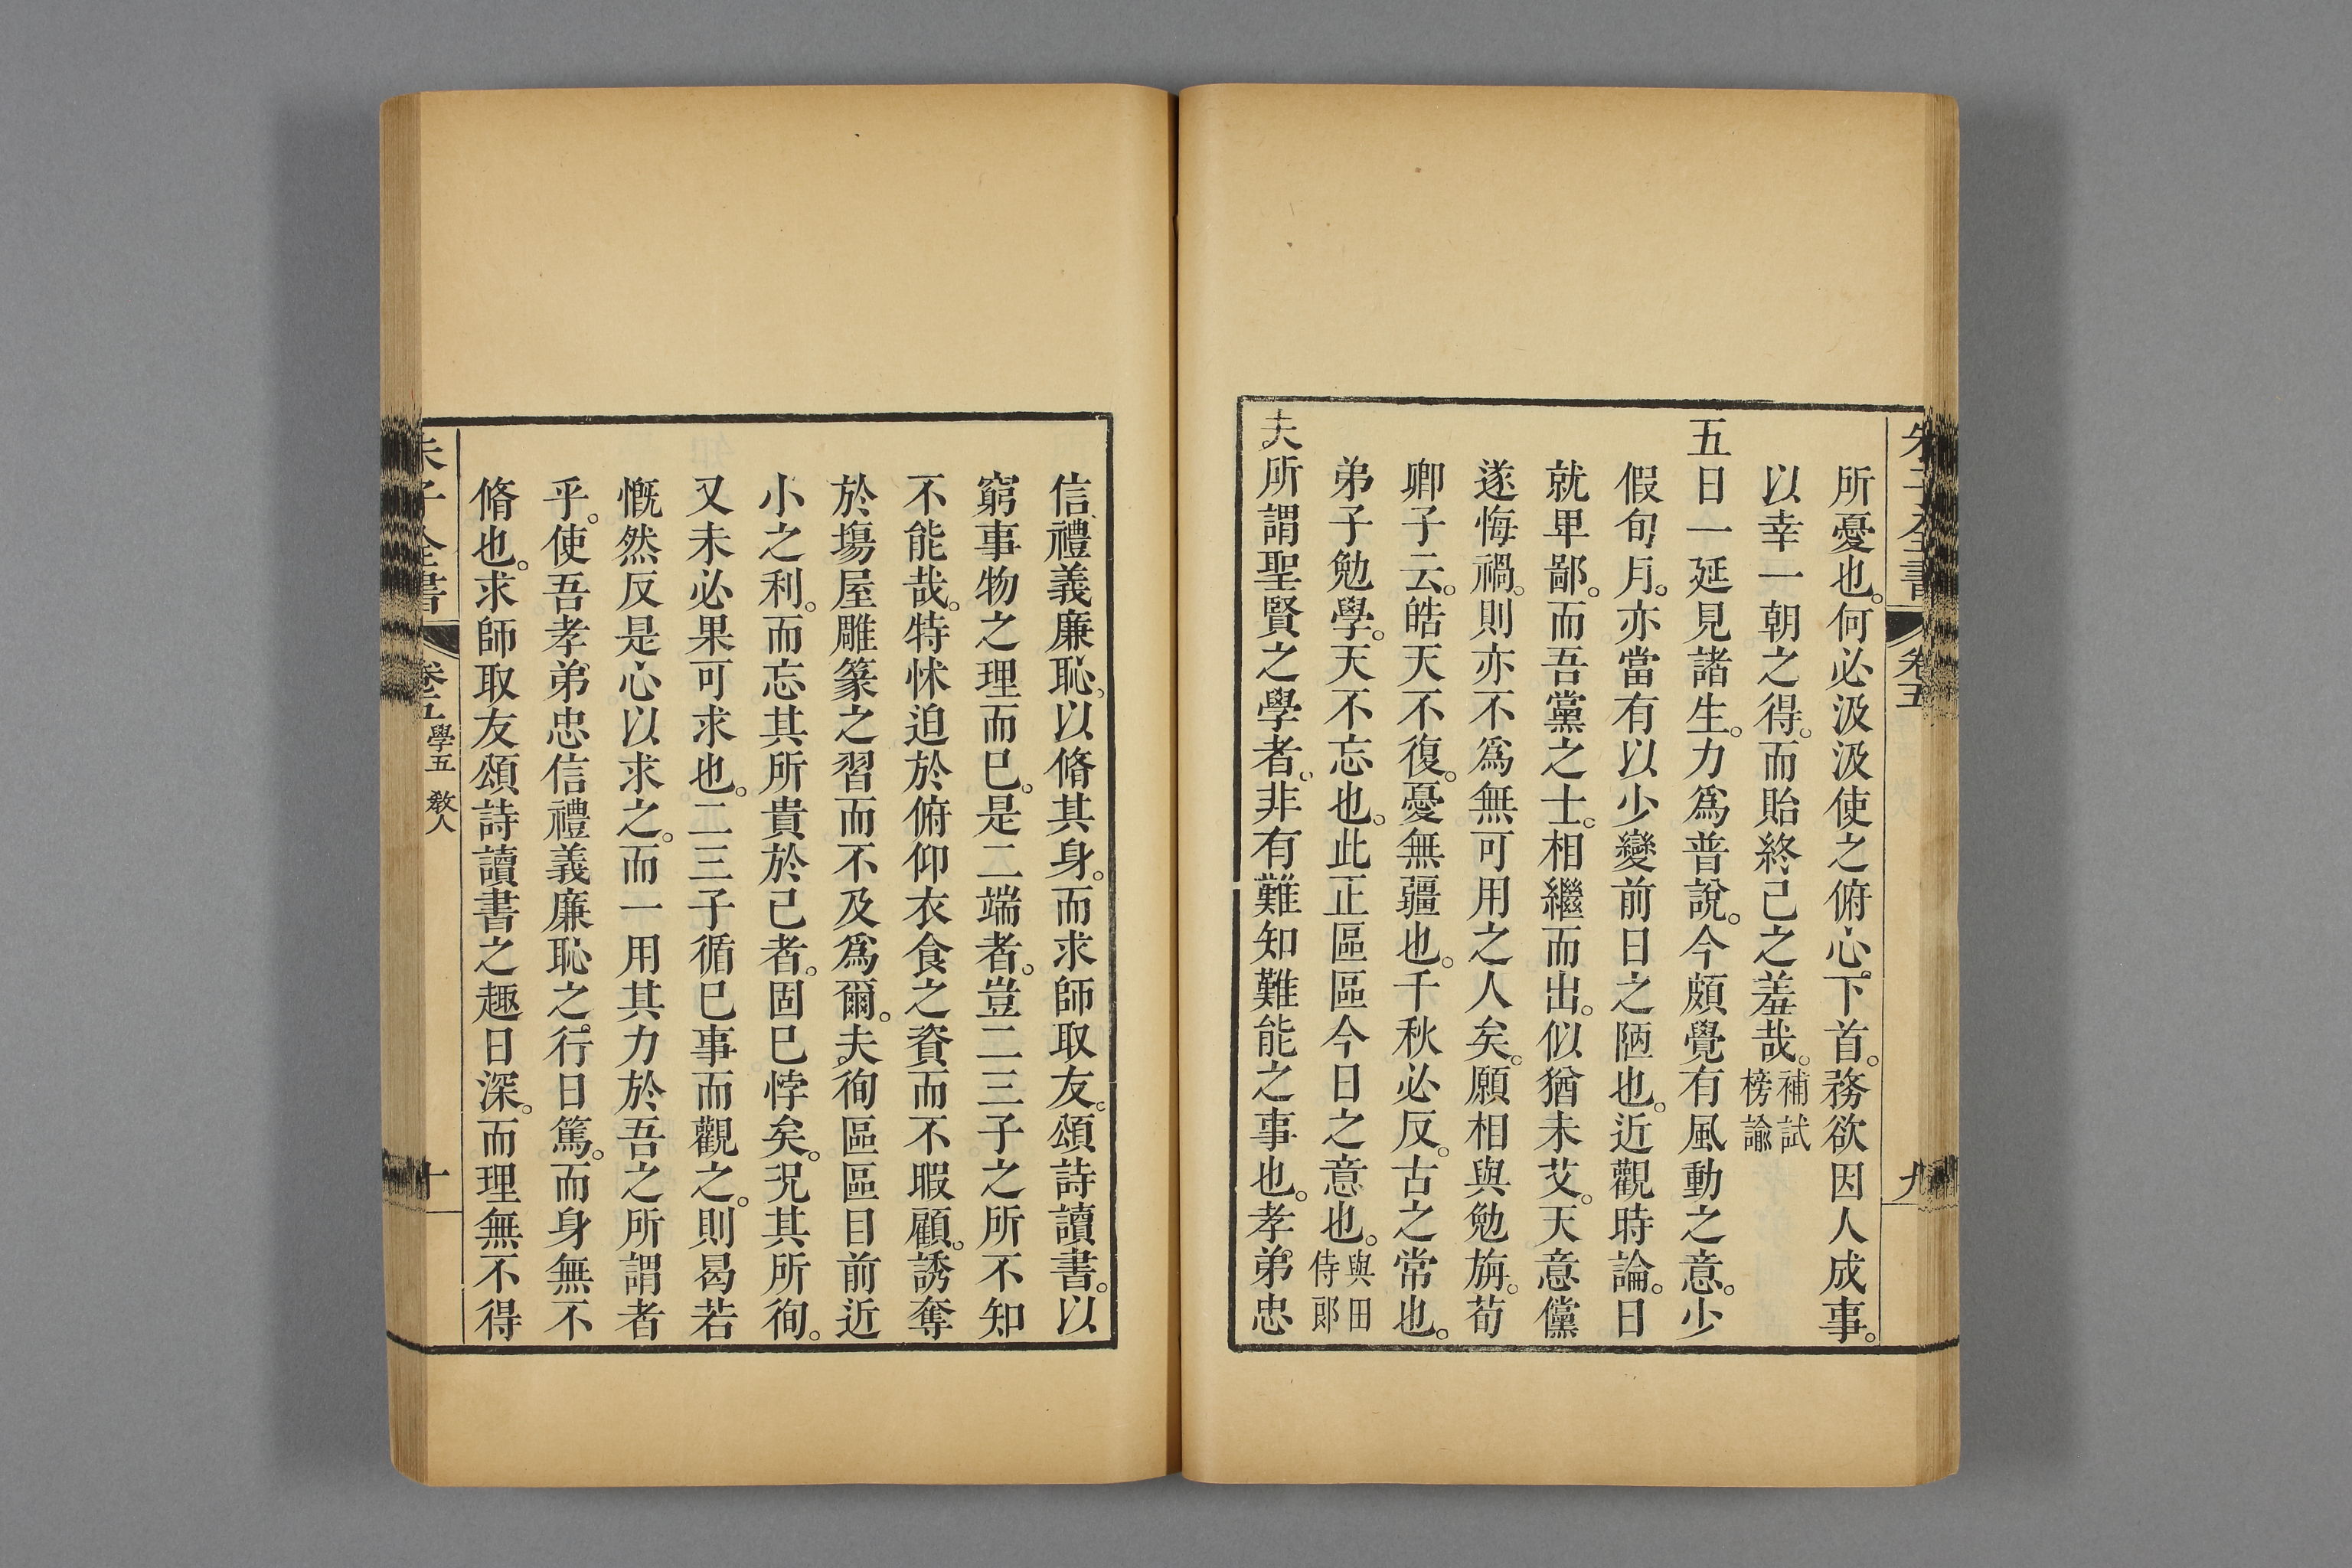 朱子全書 卷五 九
所憂也。何必汲汲使之俯心。下首。務欲因人成事。
以幸一朝之得。而貽終己之羞哉。補試榜諭
五日一延見諸生。力爲普說。今頗覺有風動之意。少
假旬月。亦當有以少變前日之陋也。近觀時論。日
就卑鄙。而吾黨之士。相繼而出。似猶未艾。天意儻
遂悔禍。則亦不爲無可用之人矣。願相與勉旃。荀
卿子云。皓天不復。憂無疆也。千秋必反。古之常也。
弟子勉學。天不忘也。此正區區今日之意也。與田侍郞
夫所謂聖賢之學者。非有難知難能之事也。孝弟忠
信禮義廉恥。以脩其身。而求師取友。頌詩讀書。以
窮事物之理而已。是二端者。豈二三子之所不知
不能哉。特怵迫於俯仰衣食之資而不暇顧。誘奪
於塲屋雕篆之習而不及爲爾。夫徇區區目前近
小之利。而忘其所貴於己者。固已悖矣。况其所徇。
又未必果可求也。二三子循已事而觀之。則曷若
慨然反是心以求之。而一用其力於吾之所謂者
乎。使吾孝弟忠信禮義廉恥之行日篤。而身無不
脩也。求師取友頌詩讀書之趣日深。而理無不得
朱子全書 卷五 學五 敎人 十